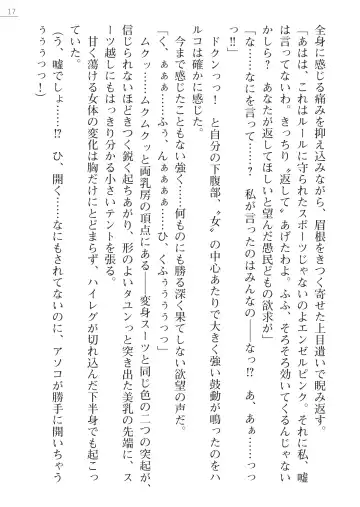 17
全身に感じる痛みを抑え込みながら、眉根をきつく寄せた上目遣いで睨み返す。
「あはは、これはルールに守られたスポーツじゃないのよエンゼルピンク。それに私、嘘
は言ってないわ。きっちり〝返して〟あげたわよ。ふふ、そろそろ効いてくるんじゃない
かしら? あなたが返してほしいと望んだ愚民どもの欲求が」
「な……なにを言って……? 私が言ったのはみんなの――なっ!? あ、あぁ……っっ
っ!!」
ドクンっっ! と自分の下腹部、〝女〟の中心あたりで大きく強い鼓動が鳴ったのをハ
ルコは確かに感じた。
今まで感じたこともない強く……何ものにも勝る深く果てしない欲望の声だ。
「く、ぁぁぁ……ふぅ、んぁぁぁぁ……ひ、くふぅぅぅぅっっ!」
ムクッ……ムクムクッと両乳房の頂点にある――変身スーツと同じ色の二つの突起が、
信じられないほどきつく鋭く起ちあがり、形のよいタユンっと突き出た美乳の先端に、ス
ーツ越しにもはっきり分かる小さいテントを張る。
甘く蕩ける女体の変化は胸だけにとどまらず、ハイレグが切れ込んだ下半身でも起こっ
ていた。
(う、嘘でしょ……!? ひ、開く……なにもされてないのに、アソコが勝手に開いちゃう
ぅぅぅっっ!